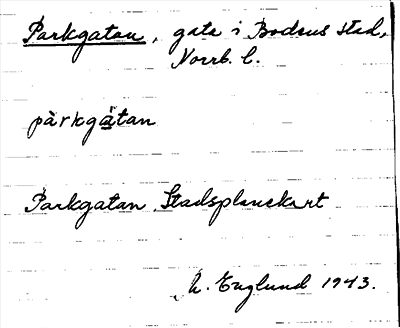 Parkgatan, gata i Bodens stad,
Norrb. l.
pàrkgа̀tan
Parkgatan Stadsplanekart
A. Englund 1943.